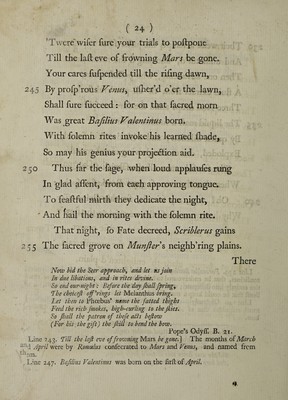 ( 24 )
'Twere wiser sure your trials to postpone
Till the last eve of frowning Mars be gone.
Your cares suspended till the rising dawn,
245 By prosp'rous Venus, usher'd o'er the lawn,
Shall sure succeed: for on that sacred morn
Was great Basilius Valentinus born.
With solemn rites invoke his learned shade,
So may his genius your projection aid.
250 Thus far the sage, when loud applauses rung
In glad assent, from each approving tongue.
To feastful mirth they dedicate the night,
And hail the morning with the solemn rite.
That night, so Fate decreed, Scriblerus gains
255 The sacred grove on Munster's neighb'ring plains.
There
Now bid the Seer approach, and let us join
In due libations, and in rites divine.
So end our night: Before the day shall spring,
The choicest off'rings let Melanthus bring.
Let then to Phœbus' name the fatted thighs
Feed the rich smokes, high-curling to the skies.
So shall the patron of these acts bestow
(For his the gift) the skill to bend the bow.
Pope's Odyss. B. 21.
Line 243. Till the last eve of frowning Mars be gone.] The months of March
and April were by Romulus consecrated to Mars and Venus, and named from
them.
Line 247. Basilius Valentinus was born on the first of April.